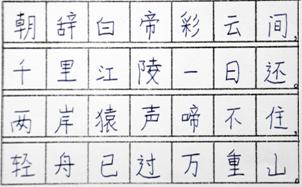 朝辞白帝彩云间,
千里江陵一日还。
两岸猿声啼不住
轻舟已过万重山。